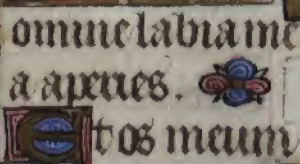 omine labia me
a aperies.
Et os meum